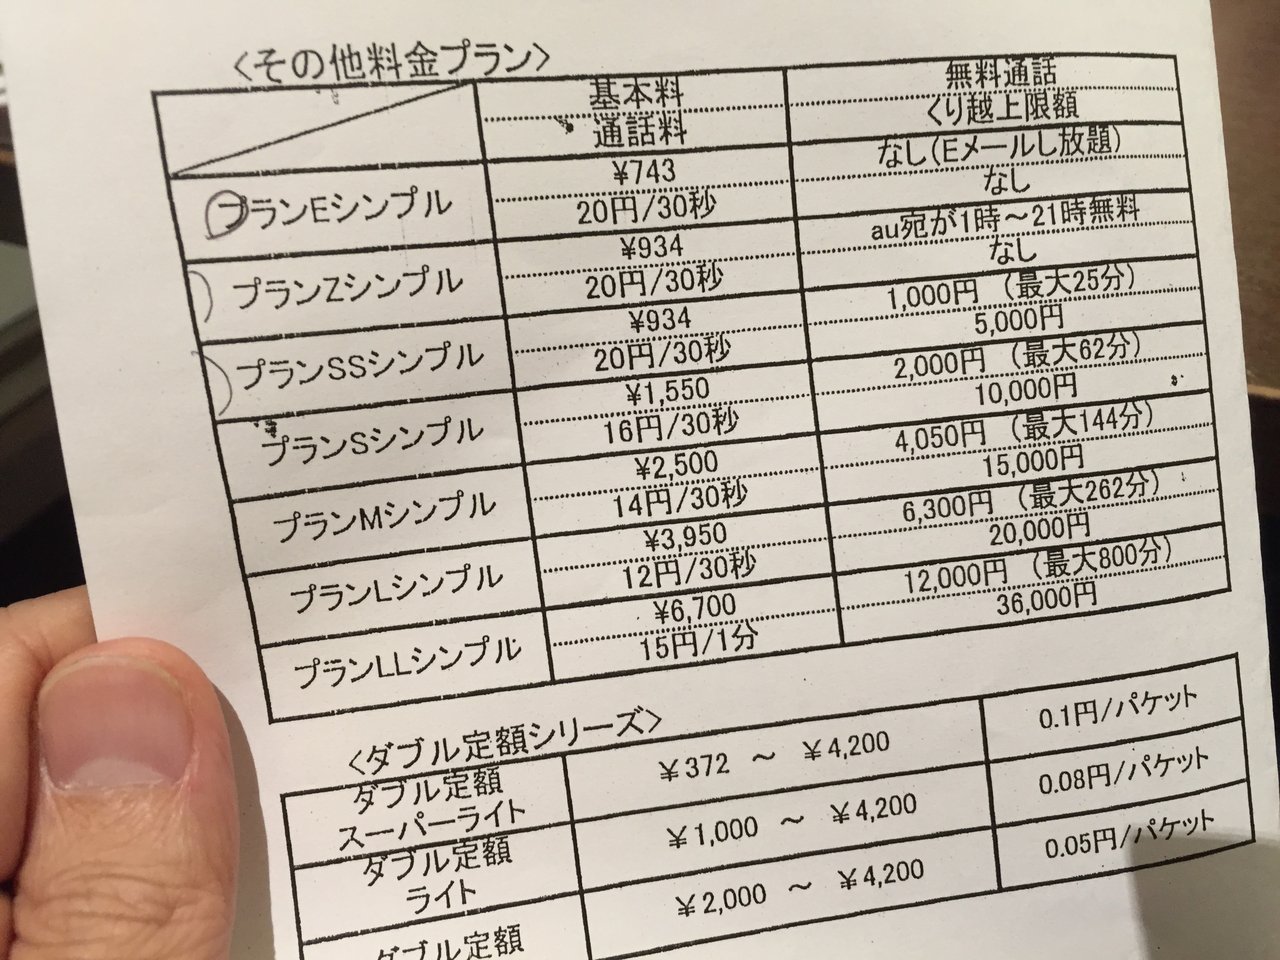 〈その他料金プラン〉
基本料
通話料
無料通話
くり越上限額
プランEシンプル
¥743
20円/30秒
なし(Eメールし放題)
なし
プランZシンプル
¥934
20円/30秒
au宛が1時～21時無料
なし
プランSSシンプル
¥934
20円/30秒
1,000円 (最大25分)
5,000円
プランSシンプル
¥1,550
16円/30秒
2,000円 (最大62分)
10,000円
プランMシンプル
¥2,500
14円/30秒
4,050円 (最大144分)
15,000円
プランLシンプル
¥3,950
12円/30秒
6,300円 (最大262分)
20,000円
プランLLシンプル
¥6,700
15円/1分
12,000円 (最大800分)
36,000円
〈ダブル定額シリーズ〉
ダブル定額
スーパーライト
¥372 ～ ¥4,200
0.1円/パケット
ダブル定額
ライト
¥1,000 ～ ¥4,200
0.08円/パケット
ダブル定額
¥2,000 ～ ¥4,200
0.05円/パケット